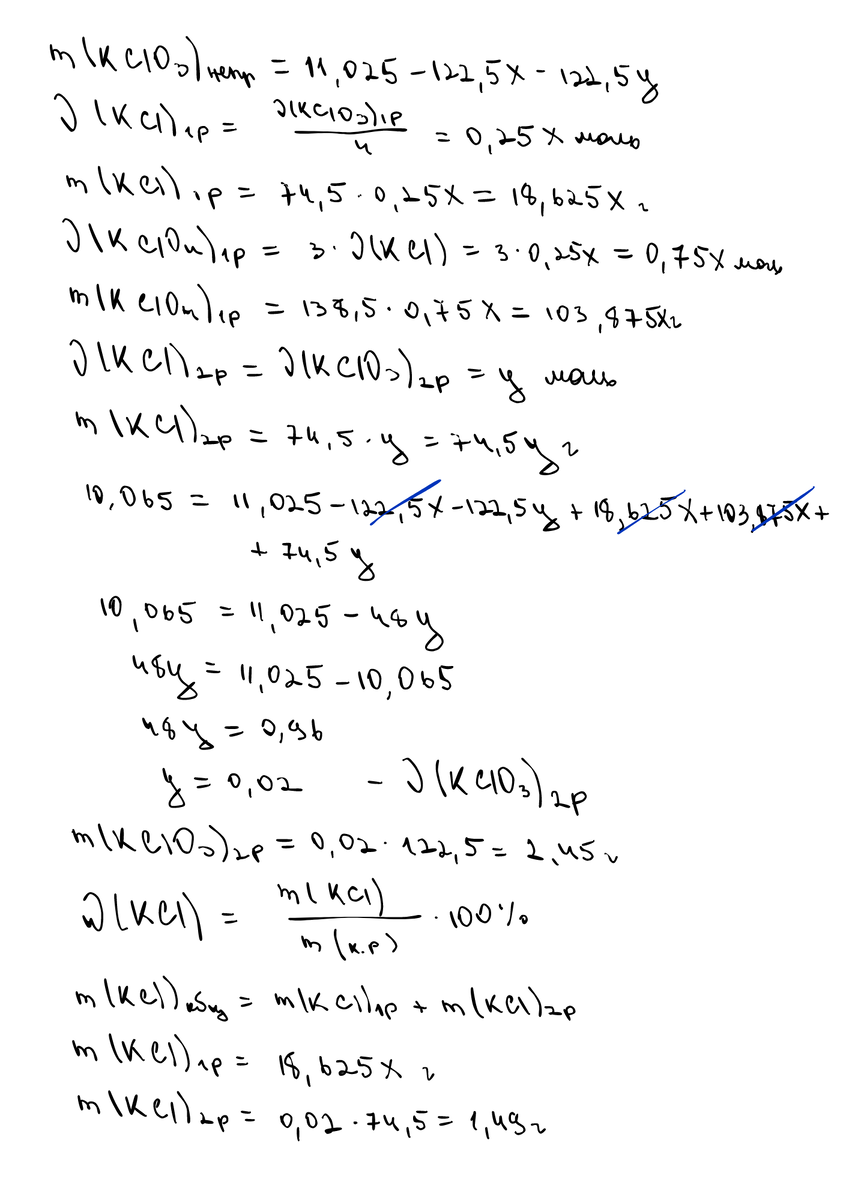 m(KClO₃)непр = 11,025 - 122,5x - 122,5y
ν(KCl)₁ₚ = ν(KClO₃)₁ₚ / 4 = 0,25x моль
m(KCl)₁ₚ = 74,5 · 0,25x = 18,625x г
ν(KClO₄)₁ₚ = 3 · ν(KCl) = 3 · 0,25x = 0,75x моль
m(KClO₄)₁ₚ = 138,5 · 0,75x = 103,875x г
ν(KCl)₂ₚ = ν(KClO₃)₂ₚ = y моль
m(KCl)₂ₚ = 74,5 · y = 74,5y г
10,065 = 11,025 - 122,5x - 122,5y + 18,625x + 103,875x +
+ 74,5y
10,065 = 11,025 - 48y
48y = 11,025 - 10,065
48y = 0,96
y = 0,02 - ν(KClO₃)₂ₚ
m(KClO₃)₂ₚ = 0,02 · 122,5 = 2,45 г
ω(KCl) = m(KCl) / m(к.р) · 100%
m(KCl)общ = m(KCl)₁ₚ + m(KCl)₂ₚ
m(KCl)₁ₚ = 18,625x г
m(KCl)₂ₚ = 0,02 · 74,5 = 1,49 г